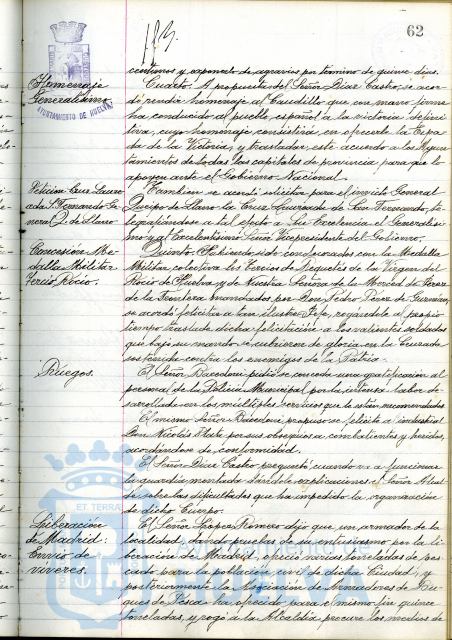 183
62
Homenaje
Generalísimo
AYUNTAMIENTO DE HUELVA
centivos y exponerlo de agravios por termino de quince dias.
Cuarto. A propuesta del Señor Diaz Castro, se acor-
dó rendir homenaje al Caudillo que con mano firme
ha conducido al pueblo español a la victoria defini-
tiva, cuyo homenaje consistirá en ofrecerle la Espa-
da de la Victoria, y trasladar este acuerdo a los Ayun-
tamientos de todas las capitales de provincia para que lo
apoyen ante el Gobierno Nacional.
Petición Cruz Laure-
ada S. Fernando Ge-
neral Q. de Llano
Tambien se acordó solicitar para el invicto General
Queipo de Llano la Cruz Laureada de San Fernando, te-
legrafiandose a tal efecto a Su Excelencia el Generalísi-
mo y al Excelentísimo Señor Vicepresidente del Gobierno.
Concesión Me-
dalla Militar
Tercio Rocío.
Quinto. Habiendo sido condecorados con la Medalla
Militar colectiva los Tercios de Requetes de la Virgen del
Rocio de Huelva y de Nuestra Señora de la Merced de Jerez
de la Frontera mandados por Don Pedro Perez de Guzman,
se acordó felicitar a tan ilustre Jefe, rogándole al propio
tiempo traslade dicha felicitación a los valientes soldados
que bajo su mando se cubrieron de gloria en la Cruzada
sostenida contra los enemigos de la Patria.
Ruegos.
El Señor Bacedoni pidió se conceda una gratificación al
personal de la Policía Municipal por la intensa labor de-
sarrollada en los múltiples servicios que le están encomendados
El mismo Señor Bacedoni propuso se felicite al industrial
Don Nicolás por sus obsequios a combatientes y heridos,
acordándose de conformidad.
El Señor Diaz Castro preguntó cuando va a funcionar
la guardia montada dándole explicaciones el Señor Alcal-
de sobre las dificultades que ha impedido la organización
de dicho Cuerpo.
Liberación
de Madrid:
Envio de
víveres.
El Señor Lopez Romero dijo que un armador de la
localidad, dando pruebas de su entusiasmo por la li-
beración de Madrid, ofrece varias toneladas de pes-
cado para la población civil de dicha Ciudad, y
posteriormente la Asociación de Armadores de Bu-
ques de Pesca ha ofrecido para el mismo fin quince
toneladas, y rogó a la Alcaldía procure los medios de
ET TERRA
Ayuntamiento de
HUELVA